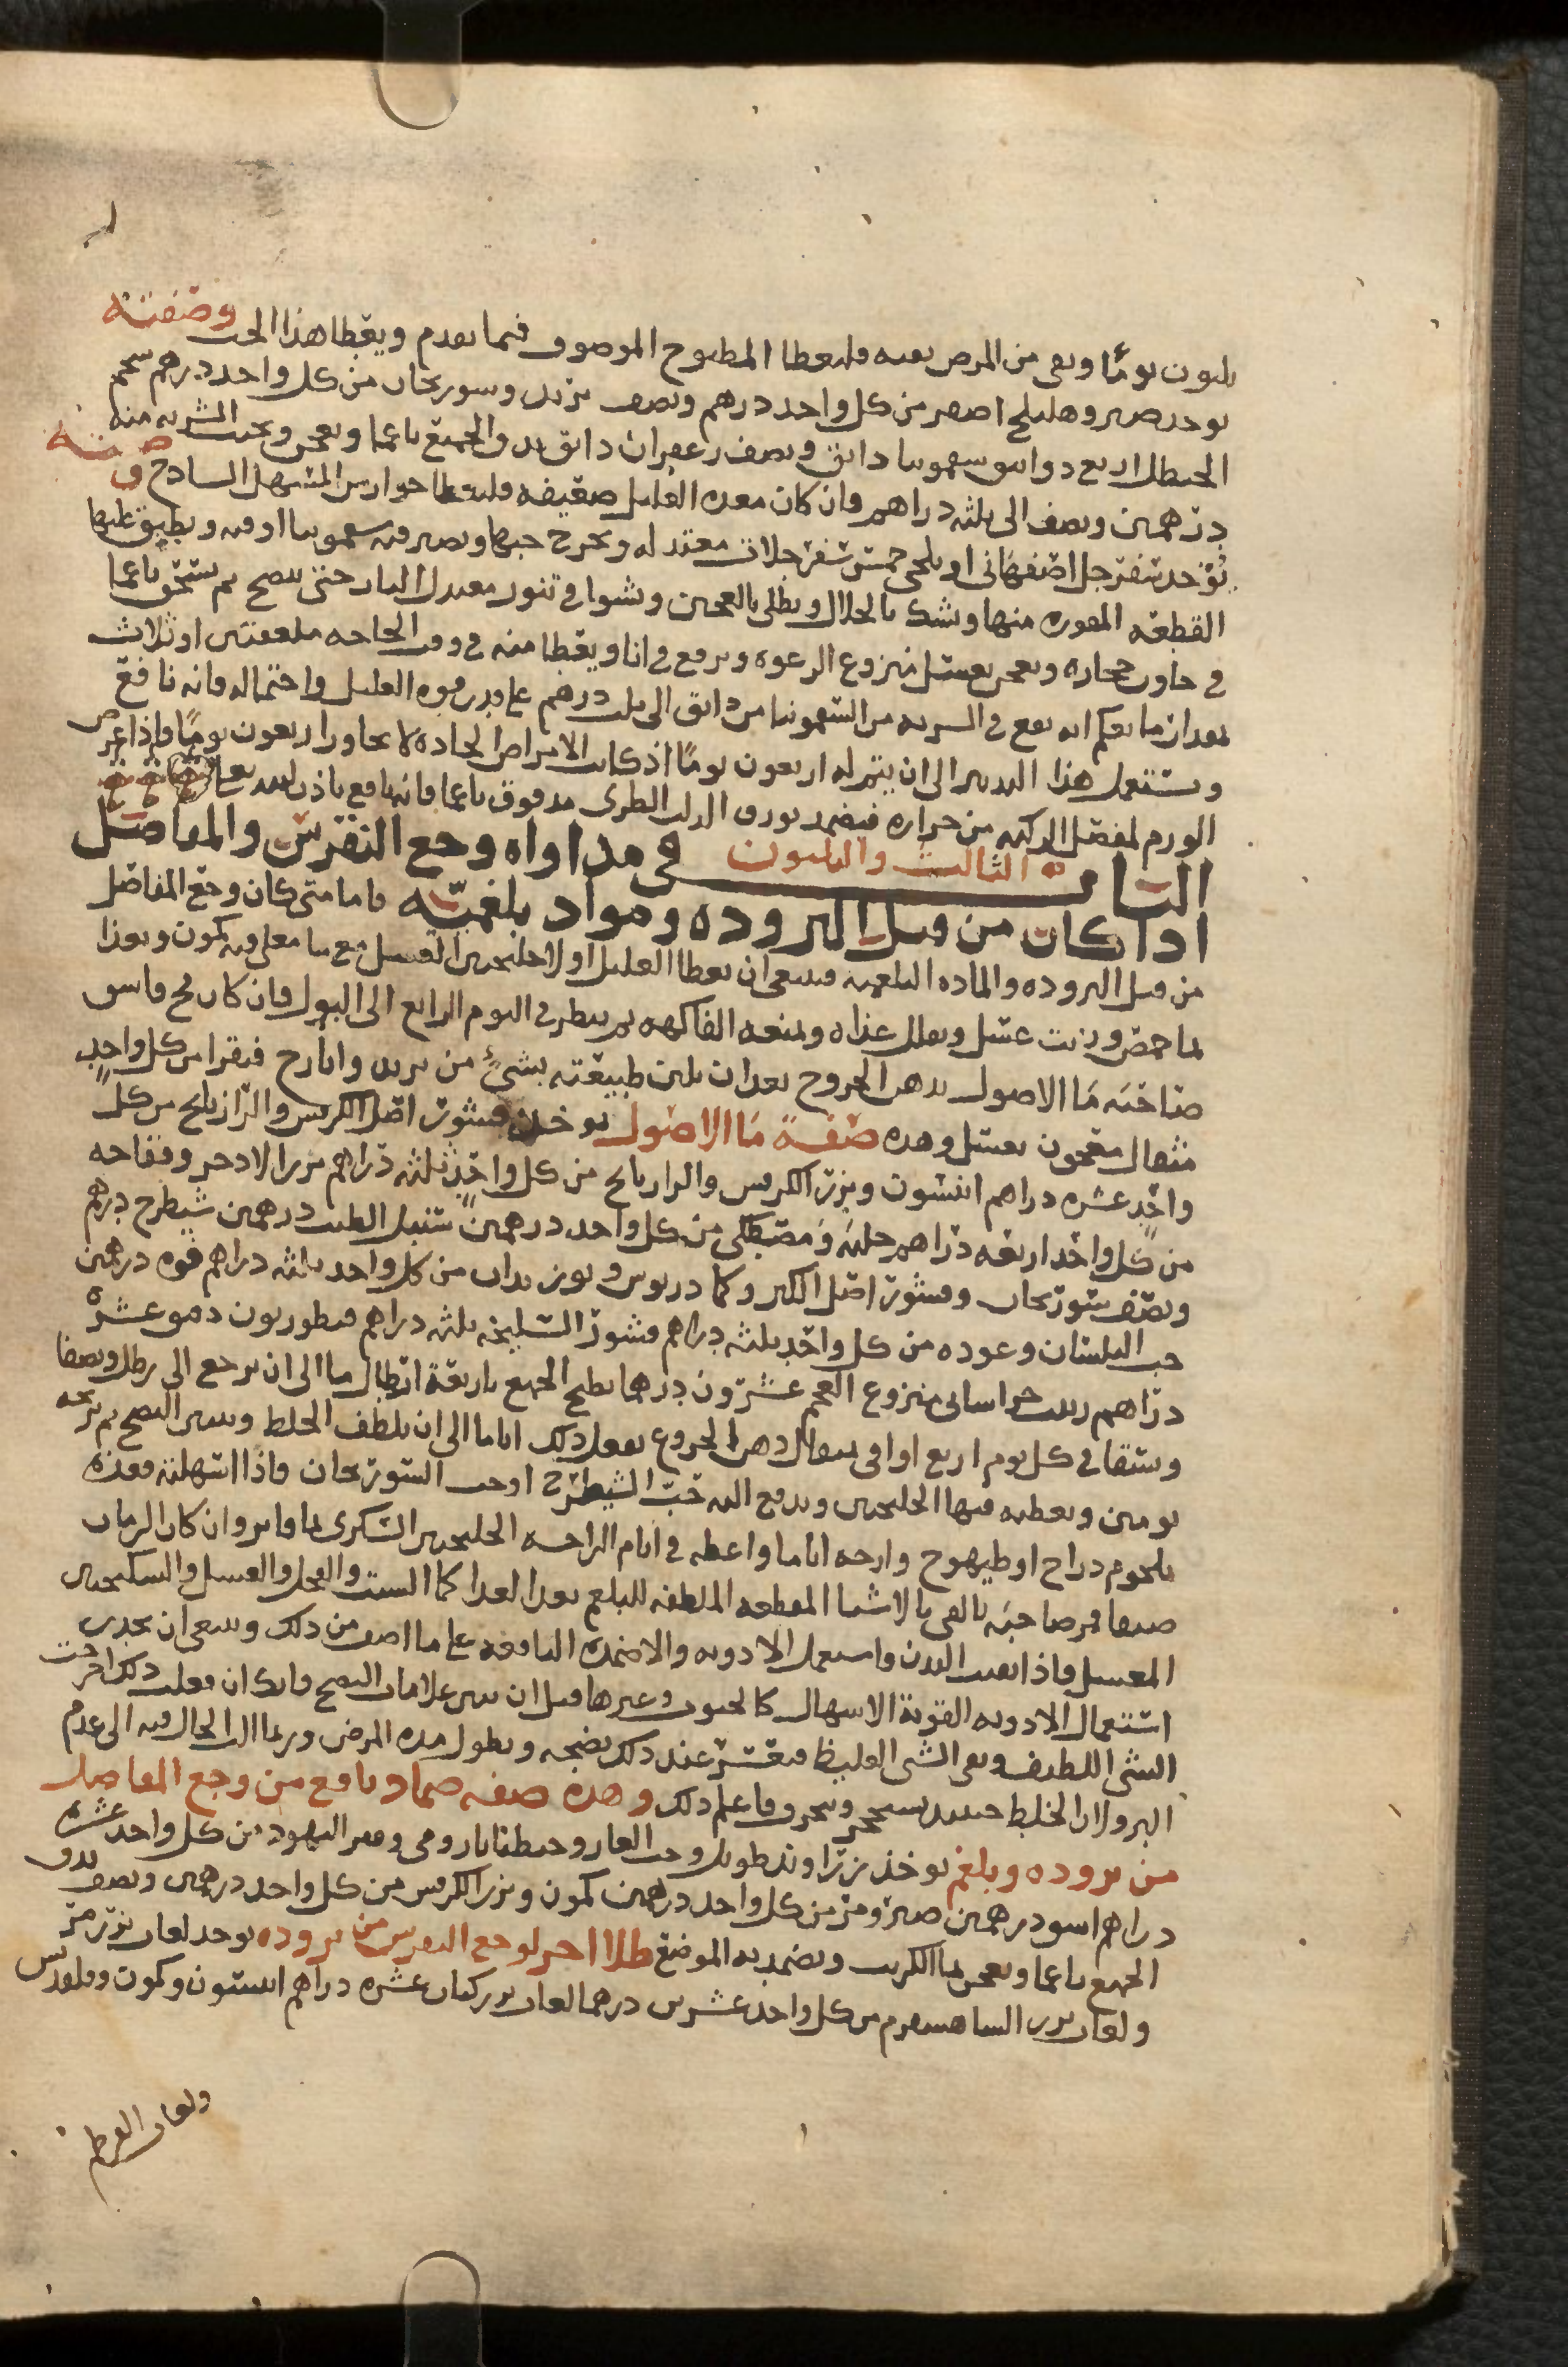 ثلثون يومًا وبقى من المرض بقيه فليعطا المطبوخ الموصوف فيما تقدم ويعطا هذا الحب وصفته
يوخذ صبر وهليلج اصفر من كل واحد درهم ونصف تربد وسورنجان من كل واحد درهم شحم
الحنظل اربع دوانيق سقمونيا دانق ونصف زعفران دانق يدق الجميع ناعما ويعجن ويحبب الشربه منه
درهمين ونصف الى ثلثه دراهم وان كان معده العليل ضعيفه فليعطا جوارش السفرجل المسهل الساذج وصفته
يؤخذ سفرجل اصفهانى او بلخى خمس سفرجلات معتدله ويخرج حبها ويصير فيه سقمونيا اوقيه ويطبق عليها
القطعه المقوره منها وشك بالخلال ويطلى بالعجين وشوا فى تنور معتدل النار حتى ينضج ثم يسحق ناعما
فى هاون حجاره ويعجن بعسل منزوع الرغوه ويرفع فى انا ويعطا منه فى وقت الحاجه ملعقتين او ثلاث
بعد ان ما يعلم انه يقع فى الشربه من السقمونيا من دانق الى ثلث درهم على قدر قوه العليل واحتماله فانه نافع
ويستعمل هذا التدبير الى ان يتم له اربعون يومًا اذ كانت الامراض الحاده لا يجاوز اربعون يومًا فاذا عرض
الورم لمفصل الركبه من حراره فيضمد بورق الدلب الطرى مدقوق ناعما فانه نافع باذن الله تعالى
الباب الثالث والثلثون فى مداواه وجع النقرس والمفاصل
اذا كان من قبل البروده ومواد بلغميّه فاما متى كان وجع المفاصل
من قبل البروده والماده البلغميه فينبغى ان يعطا العليل اولا جلنجبين العسل مع ما مغلى فيه كمون ويغذا
بما حمص وزيت عسل ويقلل غذاه ويمنعه الفاكهه ثم ينظر فى اليوم الرابع الى البول فان كان فج فاسق
صاحبه مَا الاصول بدهن الخروع بعد ان يلين طبيعته بشئ من تربد وايارج فيقرا من كل واحد
مثقال معجون بعسل وهذه صفة مَا الاصول يوخذ قشور اصل الكرفس والرازيانج من كل
واحد عشره دراهم انيسون وبزر الكرفس والرازيانج من كل واحد ثلثه دراهم بزر الاذخر وفقاحه
من كل واحد اربعه دراهم حلبه ومصطكى من كل واحد درهمين سنبل الطيب درهمين شيطرج درهم
ونصف سورنجان وقشور اصل الكبر وكمادريوس وبوزيدان من كل واحد ثلثه دراهم فوه درهمين
حب البلسان وعوده من كل واحد ثلثه دراهم قشور السليخه ثلثه دراهم قنطوريون دقيق عشره
دراهم زبيب خراسانى منزوع العجم عشرون درهما يطبخ الجميع باربعة ارطال ما الى ان يرجع الى رطل ونصف
ويسقا فى كل يوم اربع اواقى بمثقال دهن الخروع يفعل ذلك اياما الى ان يلطف الخلط ويتبين النضج ثم يريحه
يومين ويعطيه فيها الجلنجبين ويدفع اليه حَبّ الشيطرج او حب السورنجان فاذا اسهلته فغذه
بلحوم دراج او طيهوج وارحه اياما واعطه فى ايام الراحه الجلنجبين السكرى بما فاتر وان كان الزمان
صيفا فمر صاحبه بالقى بالاشيا المقطعه الملطفه للبلغم بعد الغدا كما الشبت والفجل والعسل والسكنجبين
المعسل فاذا نقيت البدن فاستعمل الادويه والاضمده النافعه على ما اصف من ذلك وينبغى ان تحذر
استعمال الادويه القويه الاسهال كالحبوب وغيرها قبل ان يتبين علامات النضج فانك ان فعلت ذلك اخرجت
الشى اللطيف وبقى الشى الغليظ فيعسر عند ذلك نضجه ويطول مده المرض وربما ال الحال فيه الى عدم
البرو لان الخلط حينئذ يستحجر ويتحرف فاعلم ذلك وهذه صفه ضماد نافع من وجع المفاصل
من بروده وبلغم يوخذ زراوند طويل وحب الغار وجنطيانا رومى وقفر اليهود من كل واحد عشره
دراهم اسود درهمين صبر ومر من كل واحد درهمين كمون وبزر الكرفس من كل واحد درهمين ونصف يدق
الجميع ناعما ويعجن بما الكرنب ويضمد به الموضع طلا اخر لوجع النقرس من بروده يوخذ لعاب بزر مر
ولعاب بزر الشاهسفرم من كل واحد عشرين درهما لعاب بزر كتان عشره دراهم انيسون وكمون وفلفل
ولعاب القرطم